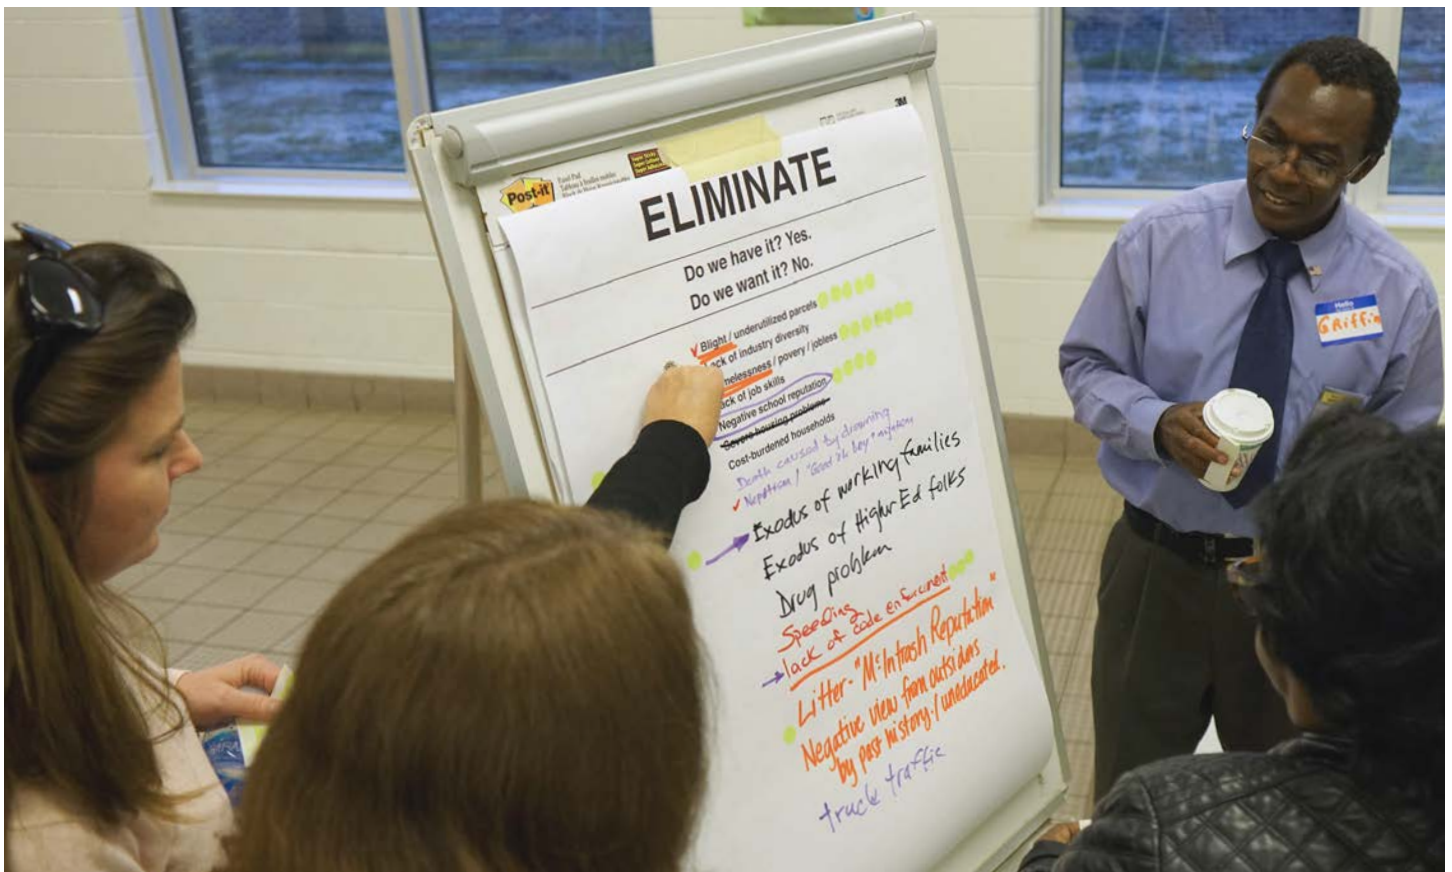 3M
Post-it
Easel Pad
Super Sticky
ELIMINATE
Do we have it? Yes.
Do we want it? No.
Blight / underutilized parcels
ack of industry diversity
melessness / povery / jobless
ack of job skills
Negative school reputation
Severe housing problems
Cost-burdened households
Death caused by drowning
Nepotism / "Good ol boy"
Exodus of working families
Exodus of Higher Ed folks
Drug problem
Speeding
lack of code enforcement
Litter - "McIntrash Reputation"
Negative view from outsiders
by past history. / uneducated.
truck traffic
Hello
GRiffin